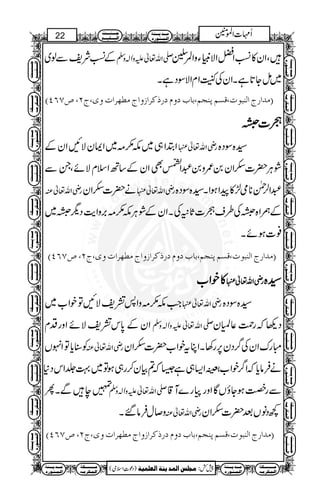 22
اُمہات المؤمنین
ہیں، ان کا نسب افضل الانبیاء والمرسلین صلی اللہ تعالیٰ علیہ واٰلہ وسلم کے نسب شریف سے لوی
میں مل جاتا ہے۔ ان کی کنیت ام الاسود ہے۔
(مدارج النبوت،قسم پنجم،باب دوم درذکرازواج مطہرات وی،ج۲،ص۴٦۷)
ہجرت حبشہ
سیدہ سودہ رضی اللہ تعالیٰ عنہا ابتدا ہی میں مکہ مکرمہ میں ایمان لائیں ان کے
شوہر حضرت سکران بن عمرو بن عبدالشمس بھی ان کے ساتھ اسلام لائے، جن سے
عبدالرحمٰن نامی لڑکا پیدا ہوا۔ سیدہ سودہ رضی اللہ تعالیٰ عنہا نے حضرت سکران رضی اللہ تعالیٰ عنہ
کے ہمراہ حبشہ کی طرف ہجرت ثانیہ کی۔ ان کے شوہر مکہ مکرمہ بروایت دیگر حبشہ میں
فوت ہوئے۔
(مدارج النبوت،قسم پنجم،باب دوم درذکرازواج مطہرات وی،ج۲،ص۴٦۷)
سیدہ رضی اللہ تعالیٰ عنہا کا خواب
سیدہ سودہ رضی اللہ تعالیٰ عنہا جب مکہ مکرمہ واپس تشریف لائیں تو خواب میں
دیکھا کہ رحمت عالمیان صلی اللہ تعالیٰ علیہ واٰلہ وسلم ان کے پاس تشریف لائے اور قدم
مبارک ان کی گردن پر رکھا۔ اپنا یہ خواب حضرت سکران رضی اللہ تعالیٰ عنہ کو سنایا تو انہوں
نے فرمایا کہ اگر خواب بعینہٖ ایسا ہی ہے جیسا کہ تم بیان کر رہی ہو تو میں بہت جلد اس دنیا
سے رخصت ہو جاؤں گا اور پیارے آقا صلی اللہ تعالیٰ علیہ واٰلہ وسلم تمہیں چاہیں گے۔ پھر
کچھ دنوں بعد حضرت سکران رضی اللہ تعالیٰ عنہ وصال فرما گئے۔
(مدارج النبوت،قسم پنجم،باب دوم درذکرازواج مطہرات وی،ج۲،ص۴٦۷)
پیش کش: مجلس المدینة العلمیة (دعوتِ اسلامی)